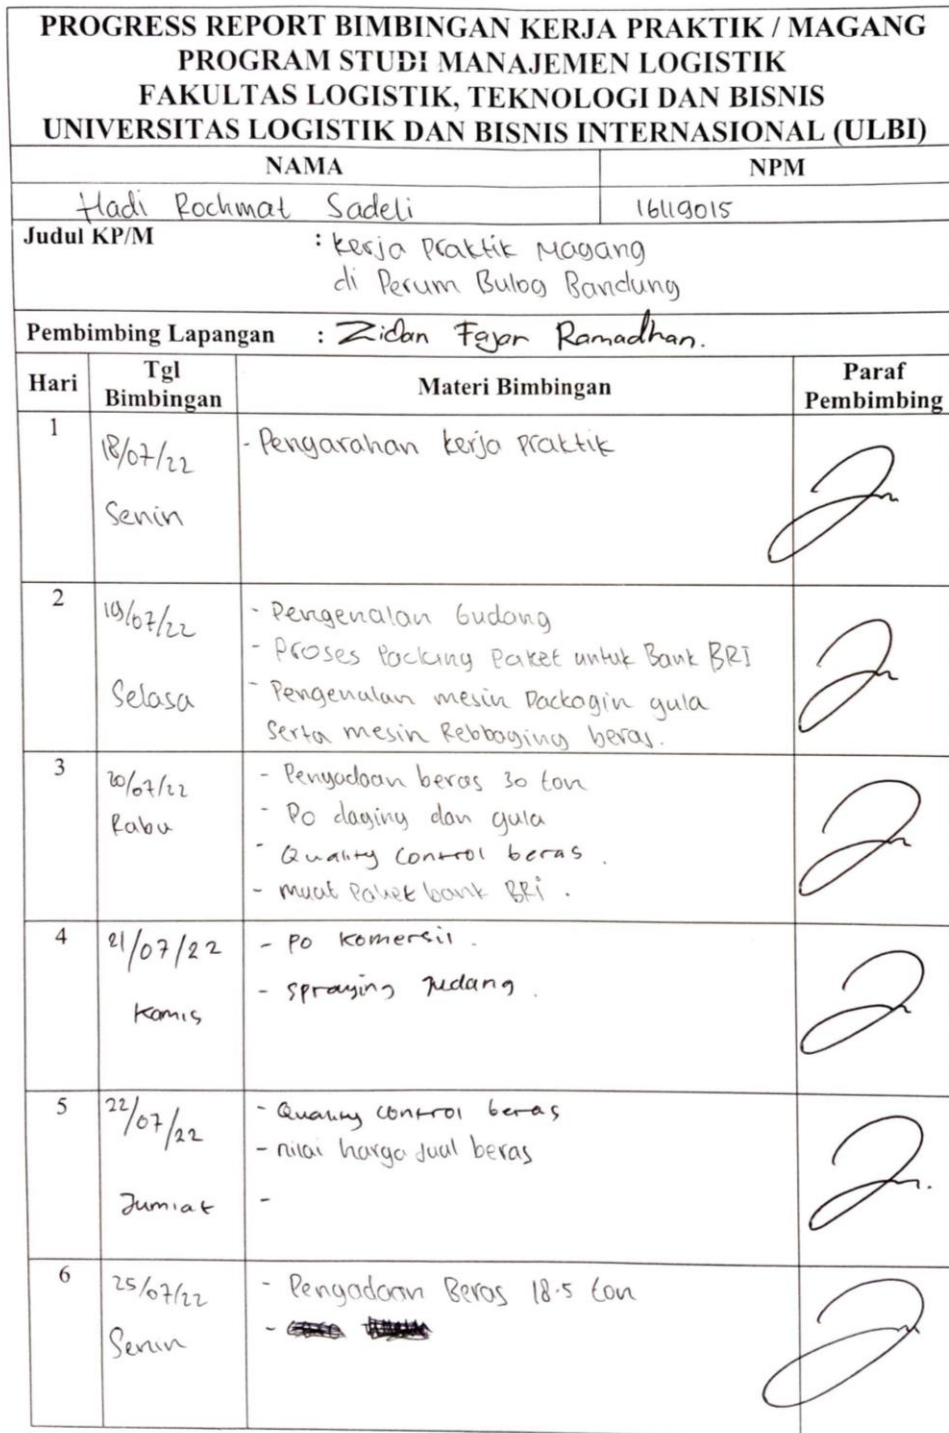 PROGRESS REPORT BIMBINGAN KERJA PRAKTIK / MAGANG
PROGRAM STUDI MANAJEMEN LOGISTIK
FAKULTAS LOGISTIK, TEKNOLOGI DAN BISNIS
UNIVERSITAS LOGISTIK DAN BISNIS INTERNASIONAL (ULBI)
NAMA NPM
Hadi Rochmat Sadeli 16119015
Judul KP/M : Kerja Praktik Magang
di Perum Bulog Bandung
Pembimbing Lapangan : Zidan Fajar Ramadhan.
Hari Tgl Bimbingan Materi Bimbingan Paraf Pembimbing
1 18/07/22 - Pengarahan kerja Praktik
Senin
2 19/07/22 - Pengenalan Gudang
- Proses Packing Paket untuk Bank BRI
Selasa - Pengenalan mesin Packagin gula
Serta mesin Rebbaging beras.
3 20/07/22 - Pengadaan beras 30 ton
Rabu - Po daging dan gula
- Quality Control beras.
- Muat Paket bank BRI.
4 21/07/22 - Po Komersil.
- Spraying Gudang.
Kamis
5 22/07/22 - Quality control beras
- nilai harga Jual beras
Jumiat -
6 25/07/22 - Pengadaan Beras 18.5 ton
Senin -